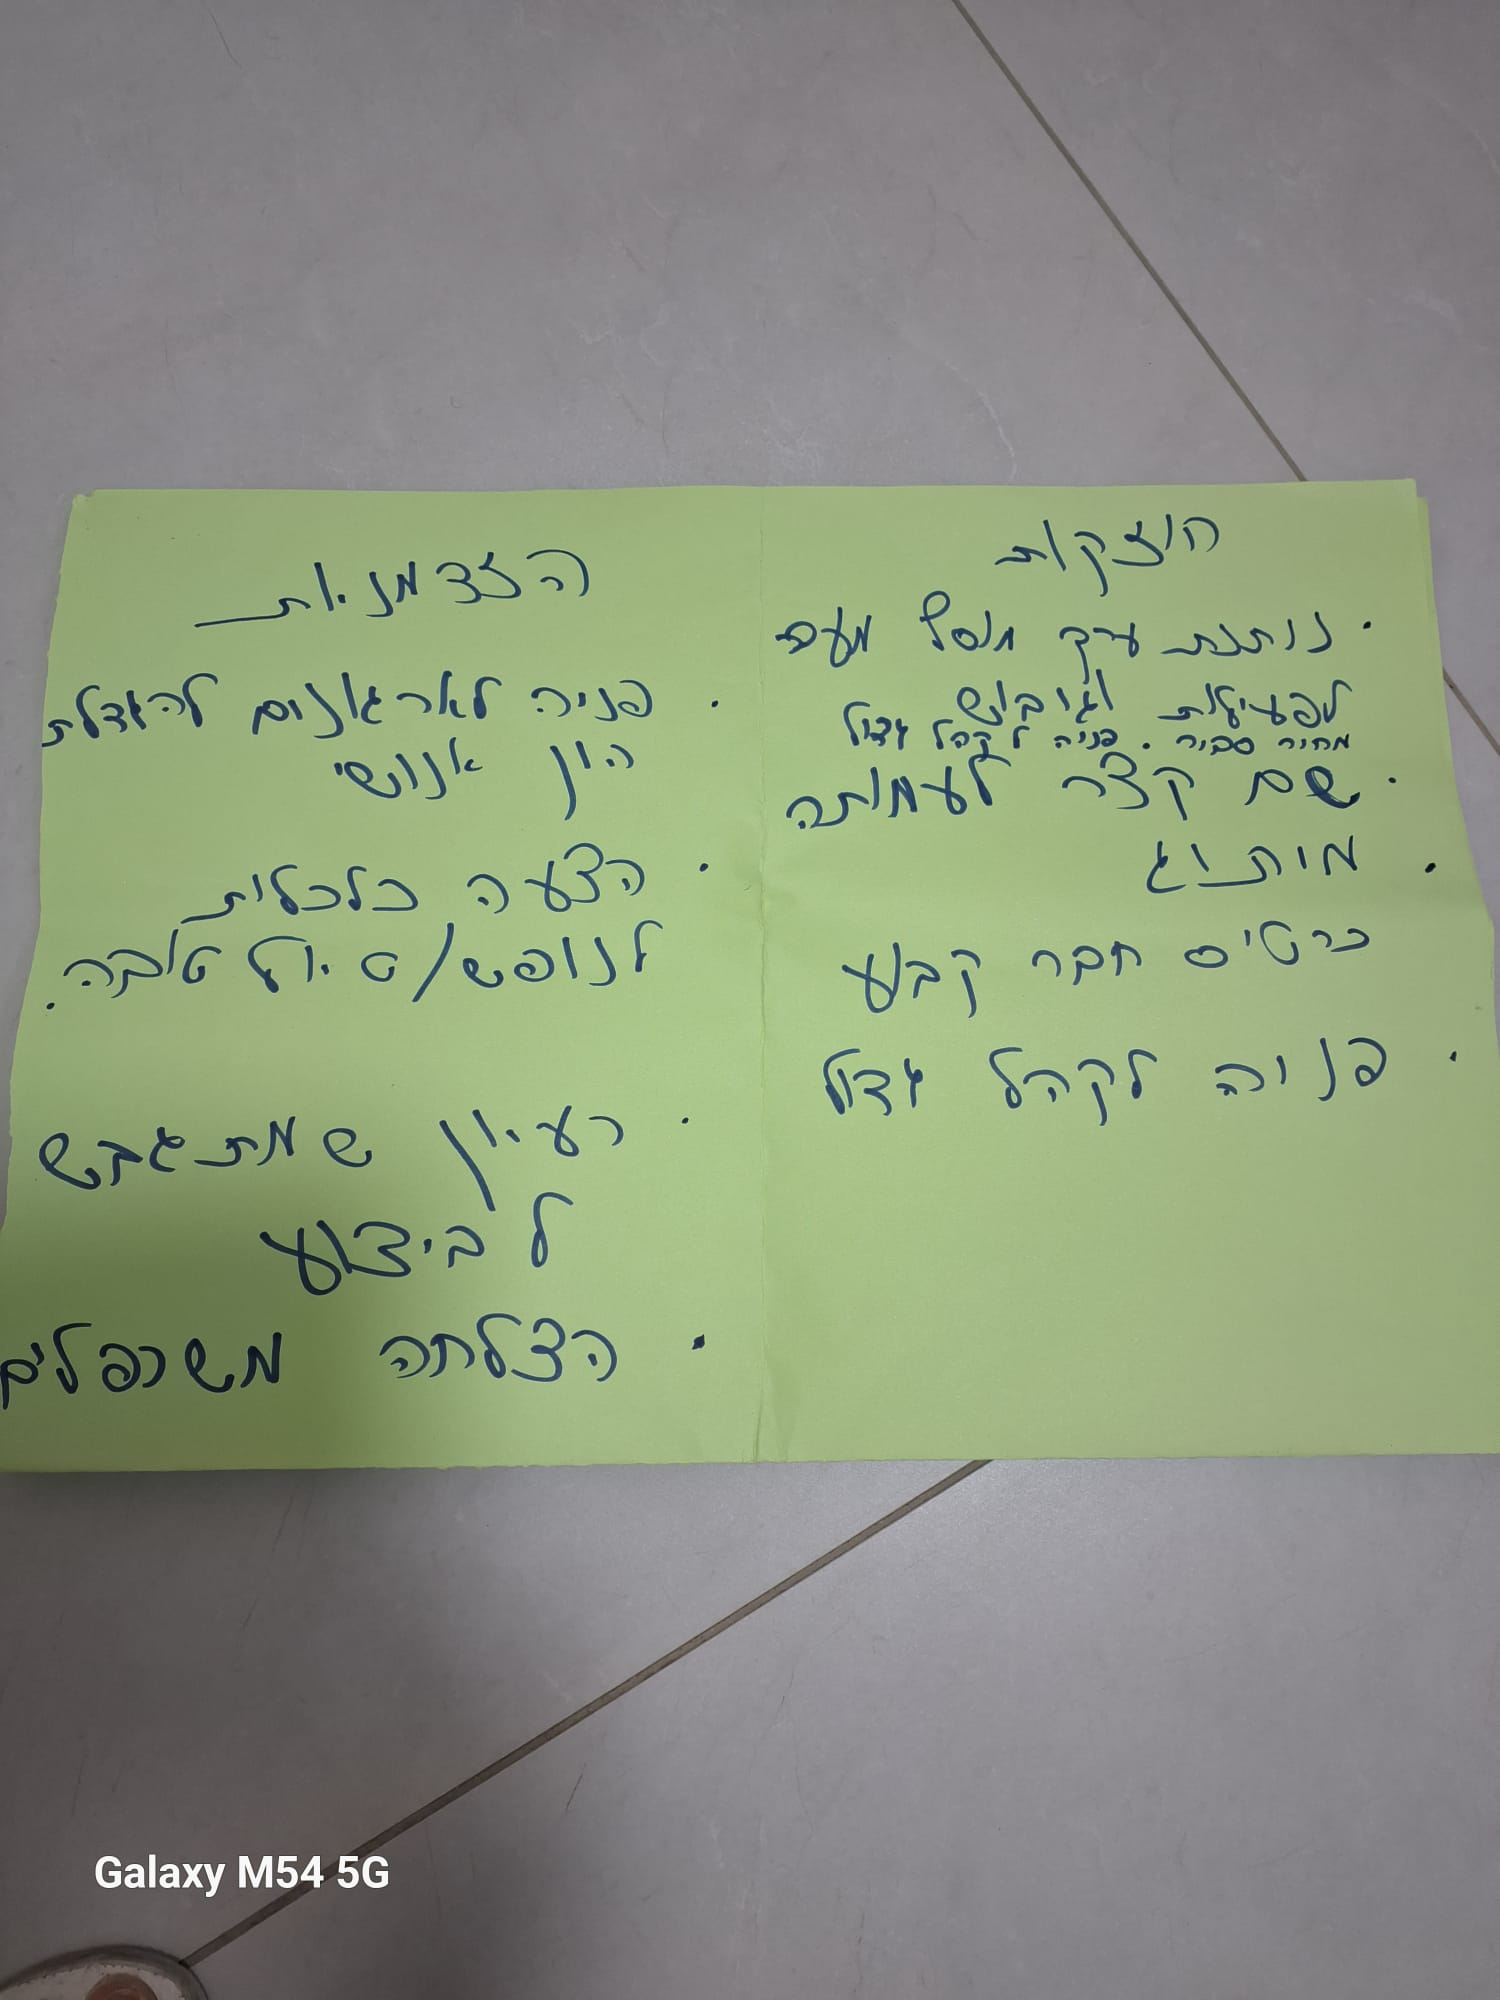 חוזקות
• נותנת ערך מוסף מעבר
לפעילות וגיבוש
מחיר סביר. פניה לקהל גדול
• שם קצר לעמותה
• מיתוג
כרטיס חבר קבע
• פניה לקהל גדול
הזדמנויות
• פניה לארגונים להגדלת
הון אנושי
• הצעה כלכלית
לנופש/טיול טובה.
• רעיון שמתגבש
לביצוע
• הצלחה משרפלים
Galaxy M54 5G